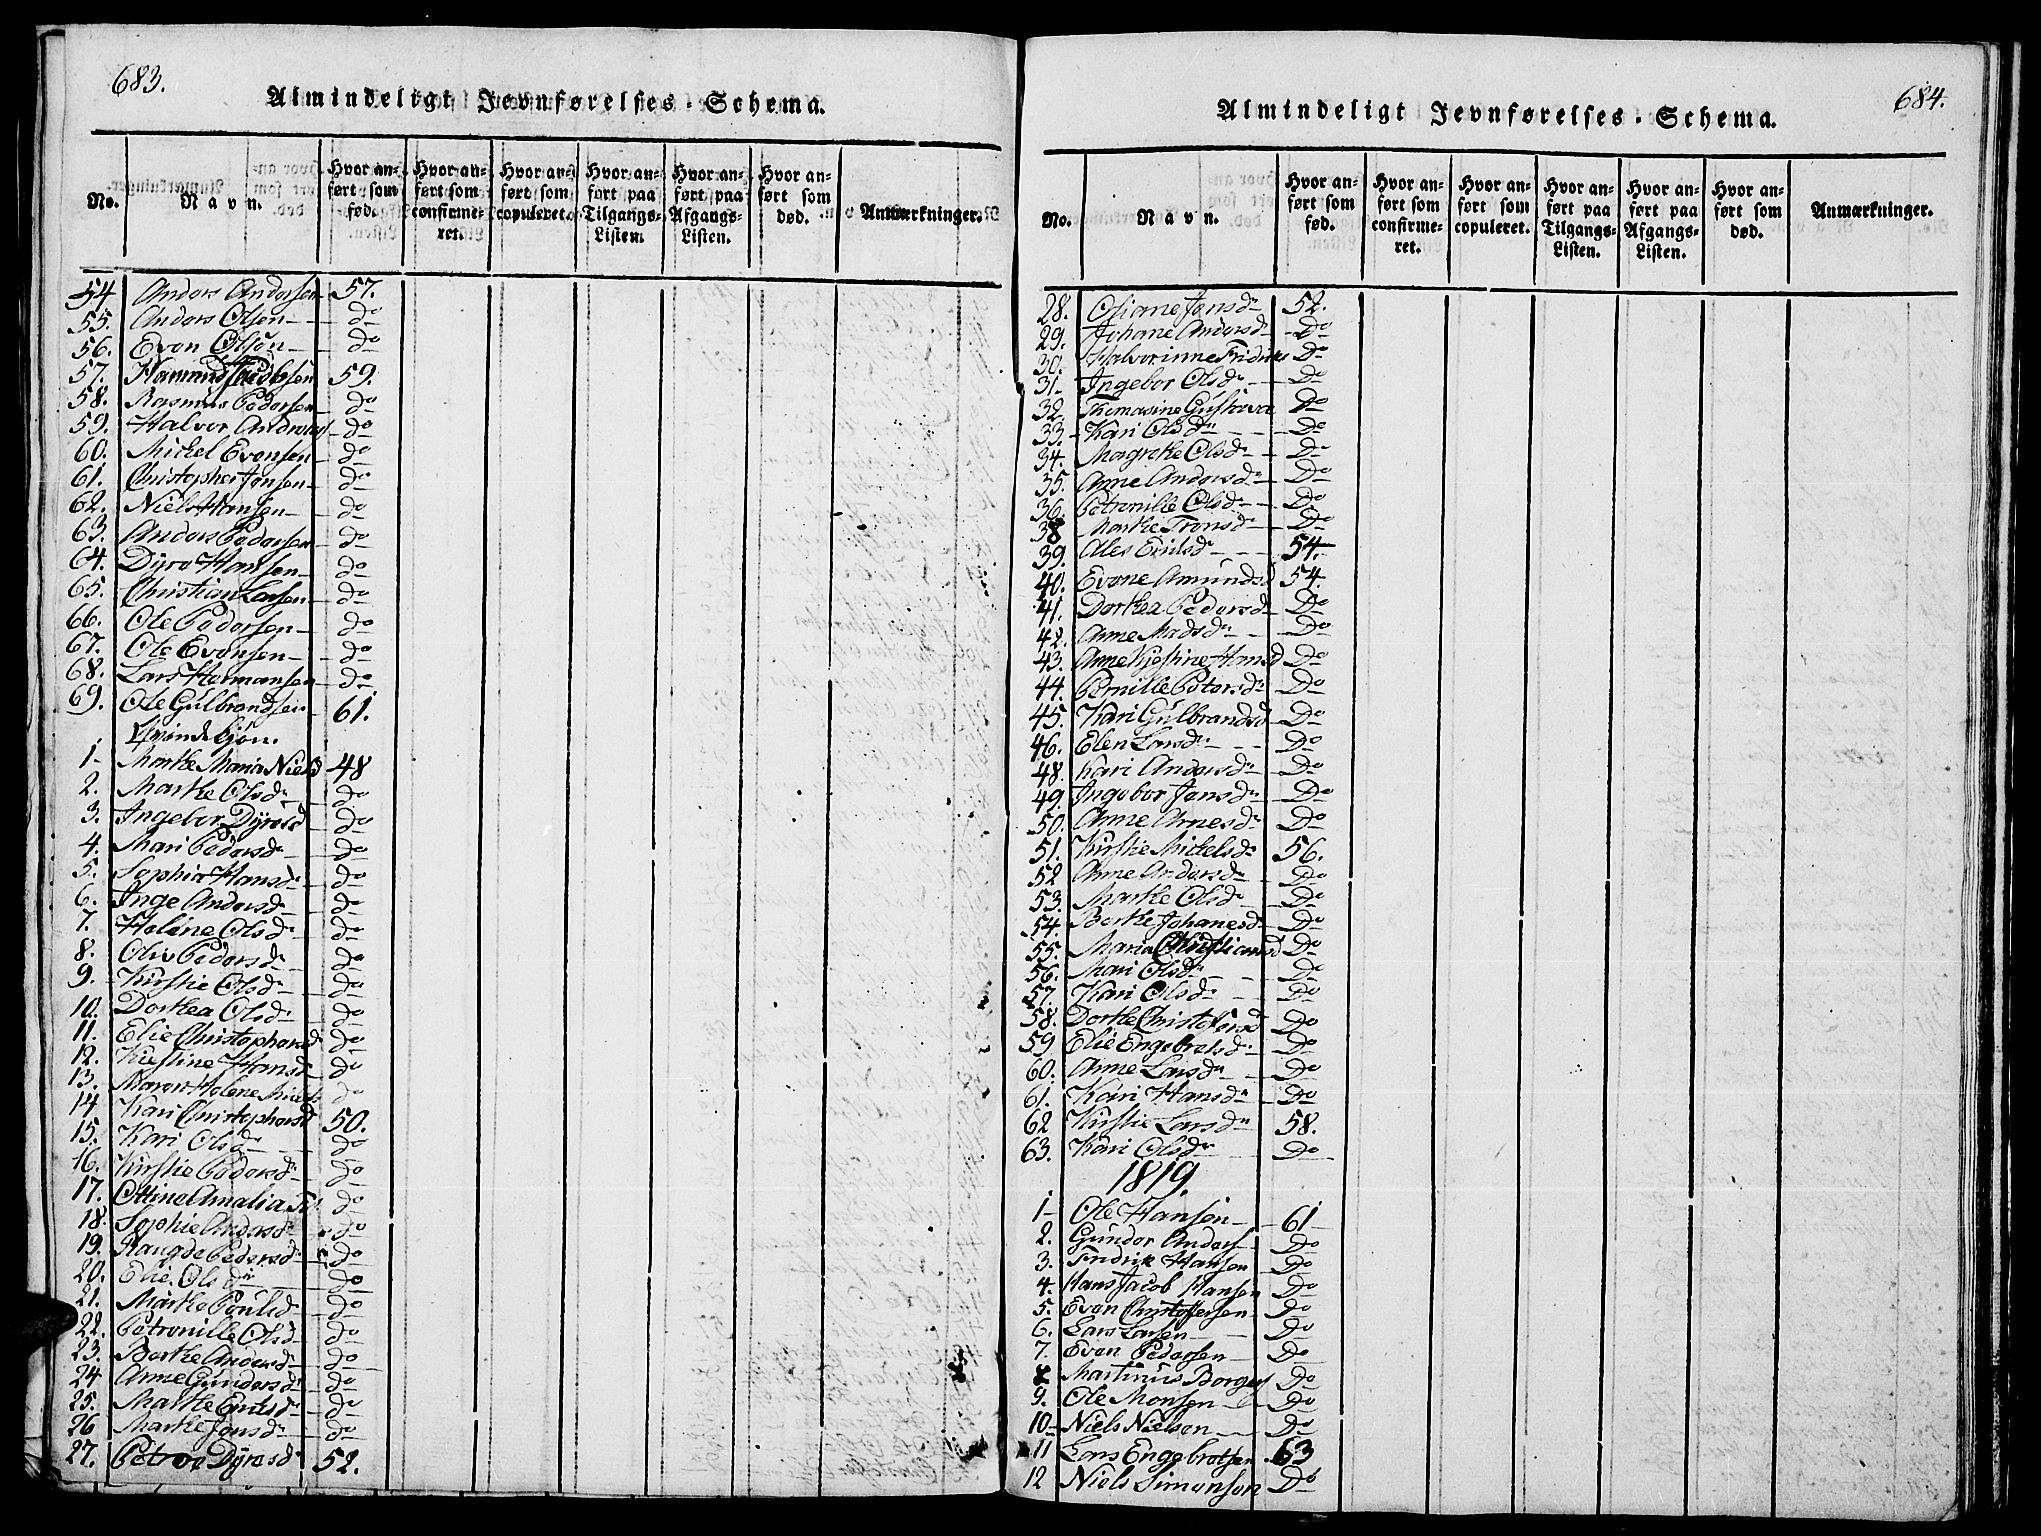 683.
Almindeligt Jevnførelses-Schema.
No.
Navn.
Hvor anført som fød.
Hvor anført som confirmeret.
Hvor anført som copuleret.
Hvor anført paa Tilgangs-Listen.
Hvor anført paa Afgangs-Listen.
Hvor anført som død.
Anmærkninger.
54 Anders Andersen 57.
55. Anders Olsen do
56. Even Olsøn do
57. Hermand Jacobsen 59.
58. Rasmus Pedersen do
59. Halvor Andreas do
60. Mickel Evensen do
61. Christopher Jensen do
62. Niels Hansen do
63. Anders Pedersen do
64. Dyre Hansen do
65. Christian Larsen do
66. Ole Pedersen do
67. Ole Evensen do
68. Lars Hermansen do
69. Ole Gulbrandsen 61.
Qvindekjøn.
1- Marthe Maria Nielsd 48
2. Marthe Olsdr do
3. Ingebor Dyresd do
4. Mari Pedersdr do
5. Sophia Hansdr do
6. Inge Andersdr do
7. Helene Olsdr do
8. Oliv Pedersdr do
9. Kirstie Olsdr do
10. Dorthea Olsdr do
11. Elie Christophersd do
12. Kiestine Hansd do
13. Maren Helene do
14 Kari Christophersd 50.
15. Kari Olsdr do
16. Kirstie Pedersdr do
17. Ottine Amalia do
18. Sophie Andersdr do
19. Raugde Pedersdr do
20. Elie Olsdr do
21. Marthe Poulsd do
22. Petronille Olsd do
23. Berthe Andersd do
24 Anne Gundersdr do
25. Marthe Erichsdr do
26 Marthe Jensdr do
27. Petroe Dyresdr 52.
684.
Almindeligt Jevnførelses-Schema.
No.
Navn.
Hvor anført som fød.
Hvor anført som confirmeret.
Hvor anført som copuleret.
Hvor anført paa Tilgangs-Listen.
Hvor anført paa Afgangs-Listen.
Hvor anført som død.
Anmærkninger.
28. Oliane Jensdr 52.
29. Johane Andersd Do
30. Halvorinne Fridrics Do
31- Ingebor Olsdr Do
32. Thomasine Gustava Do
33- Kari Olsdr Do
34. Magrethe Olsdr Do
35. Anne Andersdr Do
36. Petronille Olsdr Do
38 Marthe Tronsdr Do
39. Ales Emilsdr 54.
40. Evene Amundsd 54.
41. Dorthea Pedersd Do
42. Anne Madsdr Do
43. Anne Kjestine Hansd Do
44. Pernille Petersdr Do
45. Kari Gulbrandsd Do
46. Elen Larsdr Do
48. Kari Andersdr Do
49. Ingebor Jensdr Do
50. Anne Arnesdr Do
51. Kirstie Mickelsdr 56.
52 Anne Andersdr Do
53. Marthe Olsdr Do
54. Berthe Johanesd Do
55. Maria Christiansd Do
56. Mari Olsdr Do
57. Kari Olsdr Do
58. Dorthe Christofersd Do
59 Elie Engebretsdr Do
60. Anne Larsdr Do
61. Kari Hansdr Do
62 Kirstie Larsdr 58.
63. Kari Olsdr Do
1819.
1- Ole Hansen 61
2. Gunder Anders Do
3. Fridrik Hansen Do
4. Hans Jacob Hansen Do
5. Even Christoffersen Do
6. Lars Larsen Do
7. Even Pedersen Do
8 Martinus Borger Do
9. Ole Monsen Do
10- Niels Nielsen Do
11 Lars Engebretsen 63
12 Niels Simonsen Do